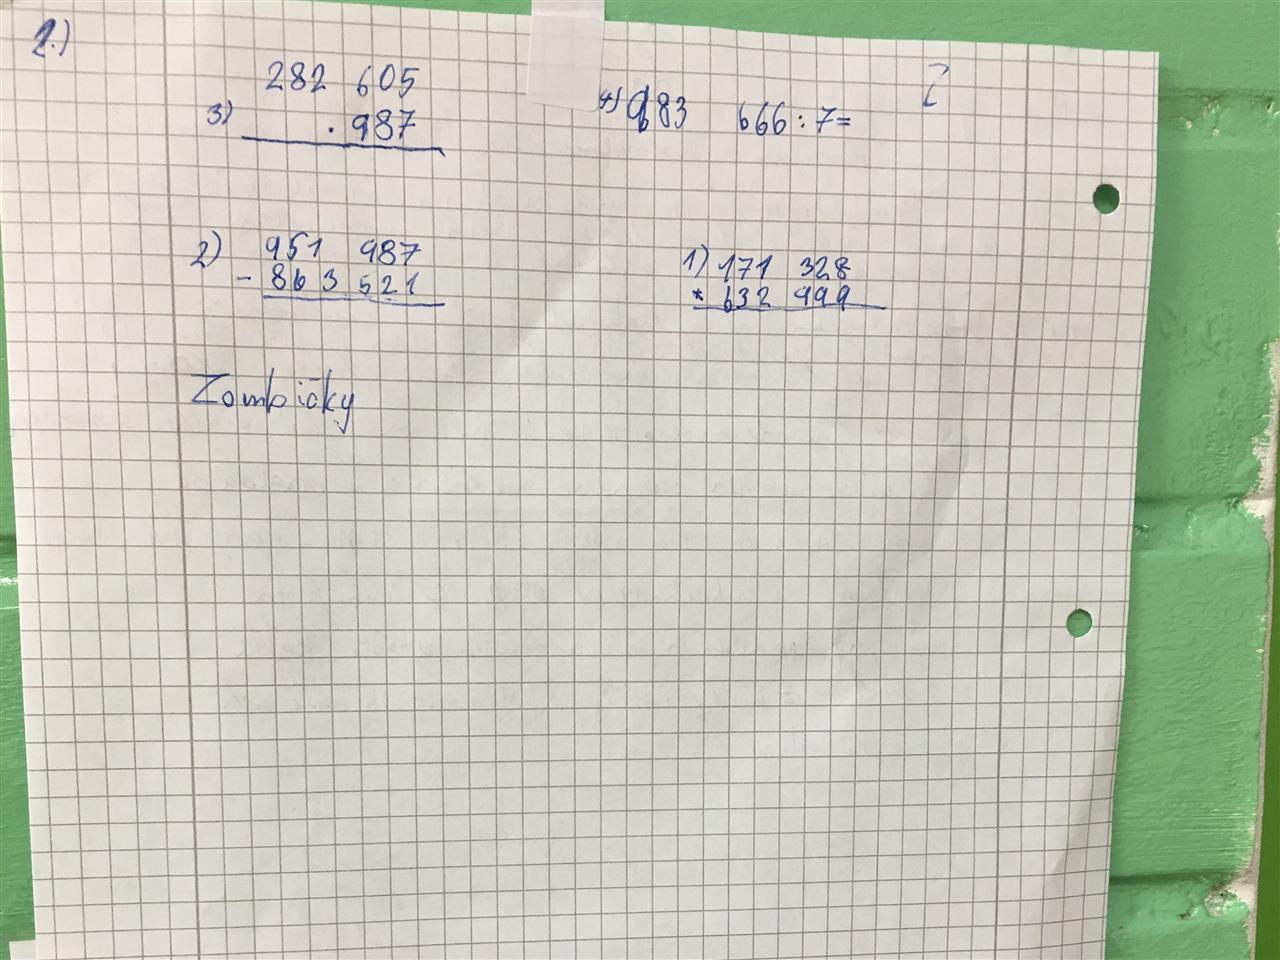 1.)
282 605
3) · 987
4) 983 666 : 7 =
2) 951 987
- 863 521
1) 171 328
* 632 999
Zombičky